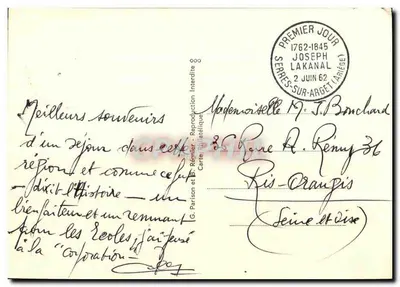 PREMIER JOUR
1762-1845
JOSEPH
LAKANAL
2 JUIN 62
SERRES-SUR-ARGET (ARIÈGE)
Meilleurs souvenirs
d'un séjour dans cette
région et comme ce fut
- dixit l'Histoire - un
bienfaiteur et un
pour les Ecoles, j'ai pensé
à la "corporation" -
G. Parison et R. Régnier Reproduction Interdite
Carte
Mademoiselle M. J. Bouchard
36 Rue A. Remy 36
Ris-Orangis
(Seine et Oise)